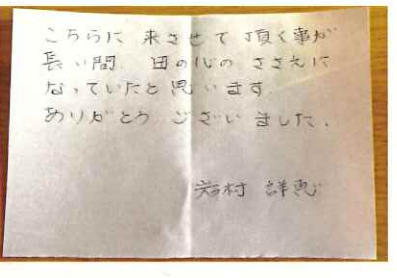 こちらに 来させて 頂く事が
長い間、母の心の ささえに
なっていたと思います。
ありがとう ございました。
岩村